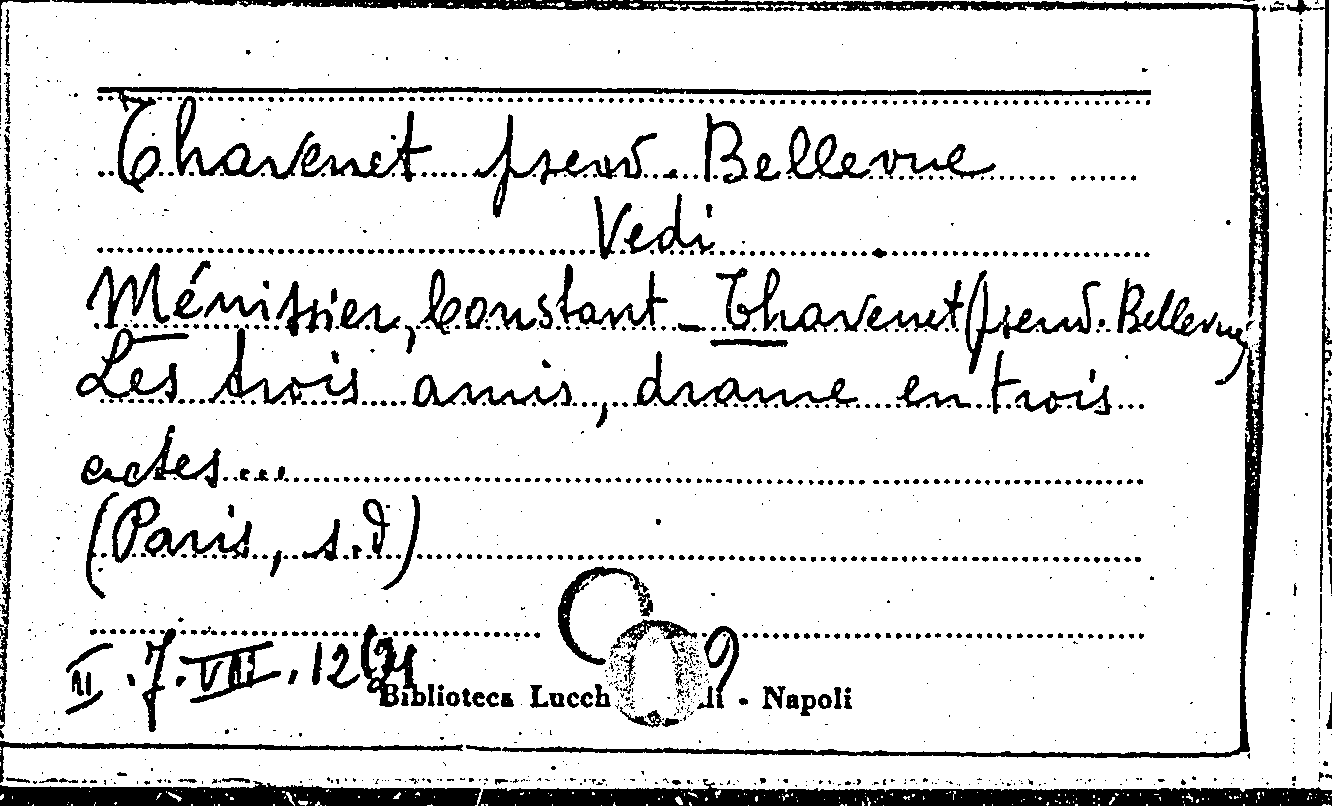 Thavenet pseud. Bellevue
Vedi
Ménissier, Constant _ Thavenet (pseud. Bellevue)
Les trois amis, drame en trois
actes...
(Paris, s.d)
II . 7 . VIII . 12 (
Biblioteca Lucch li - Napoli